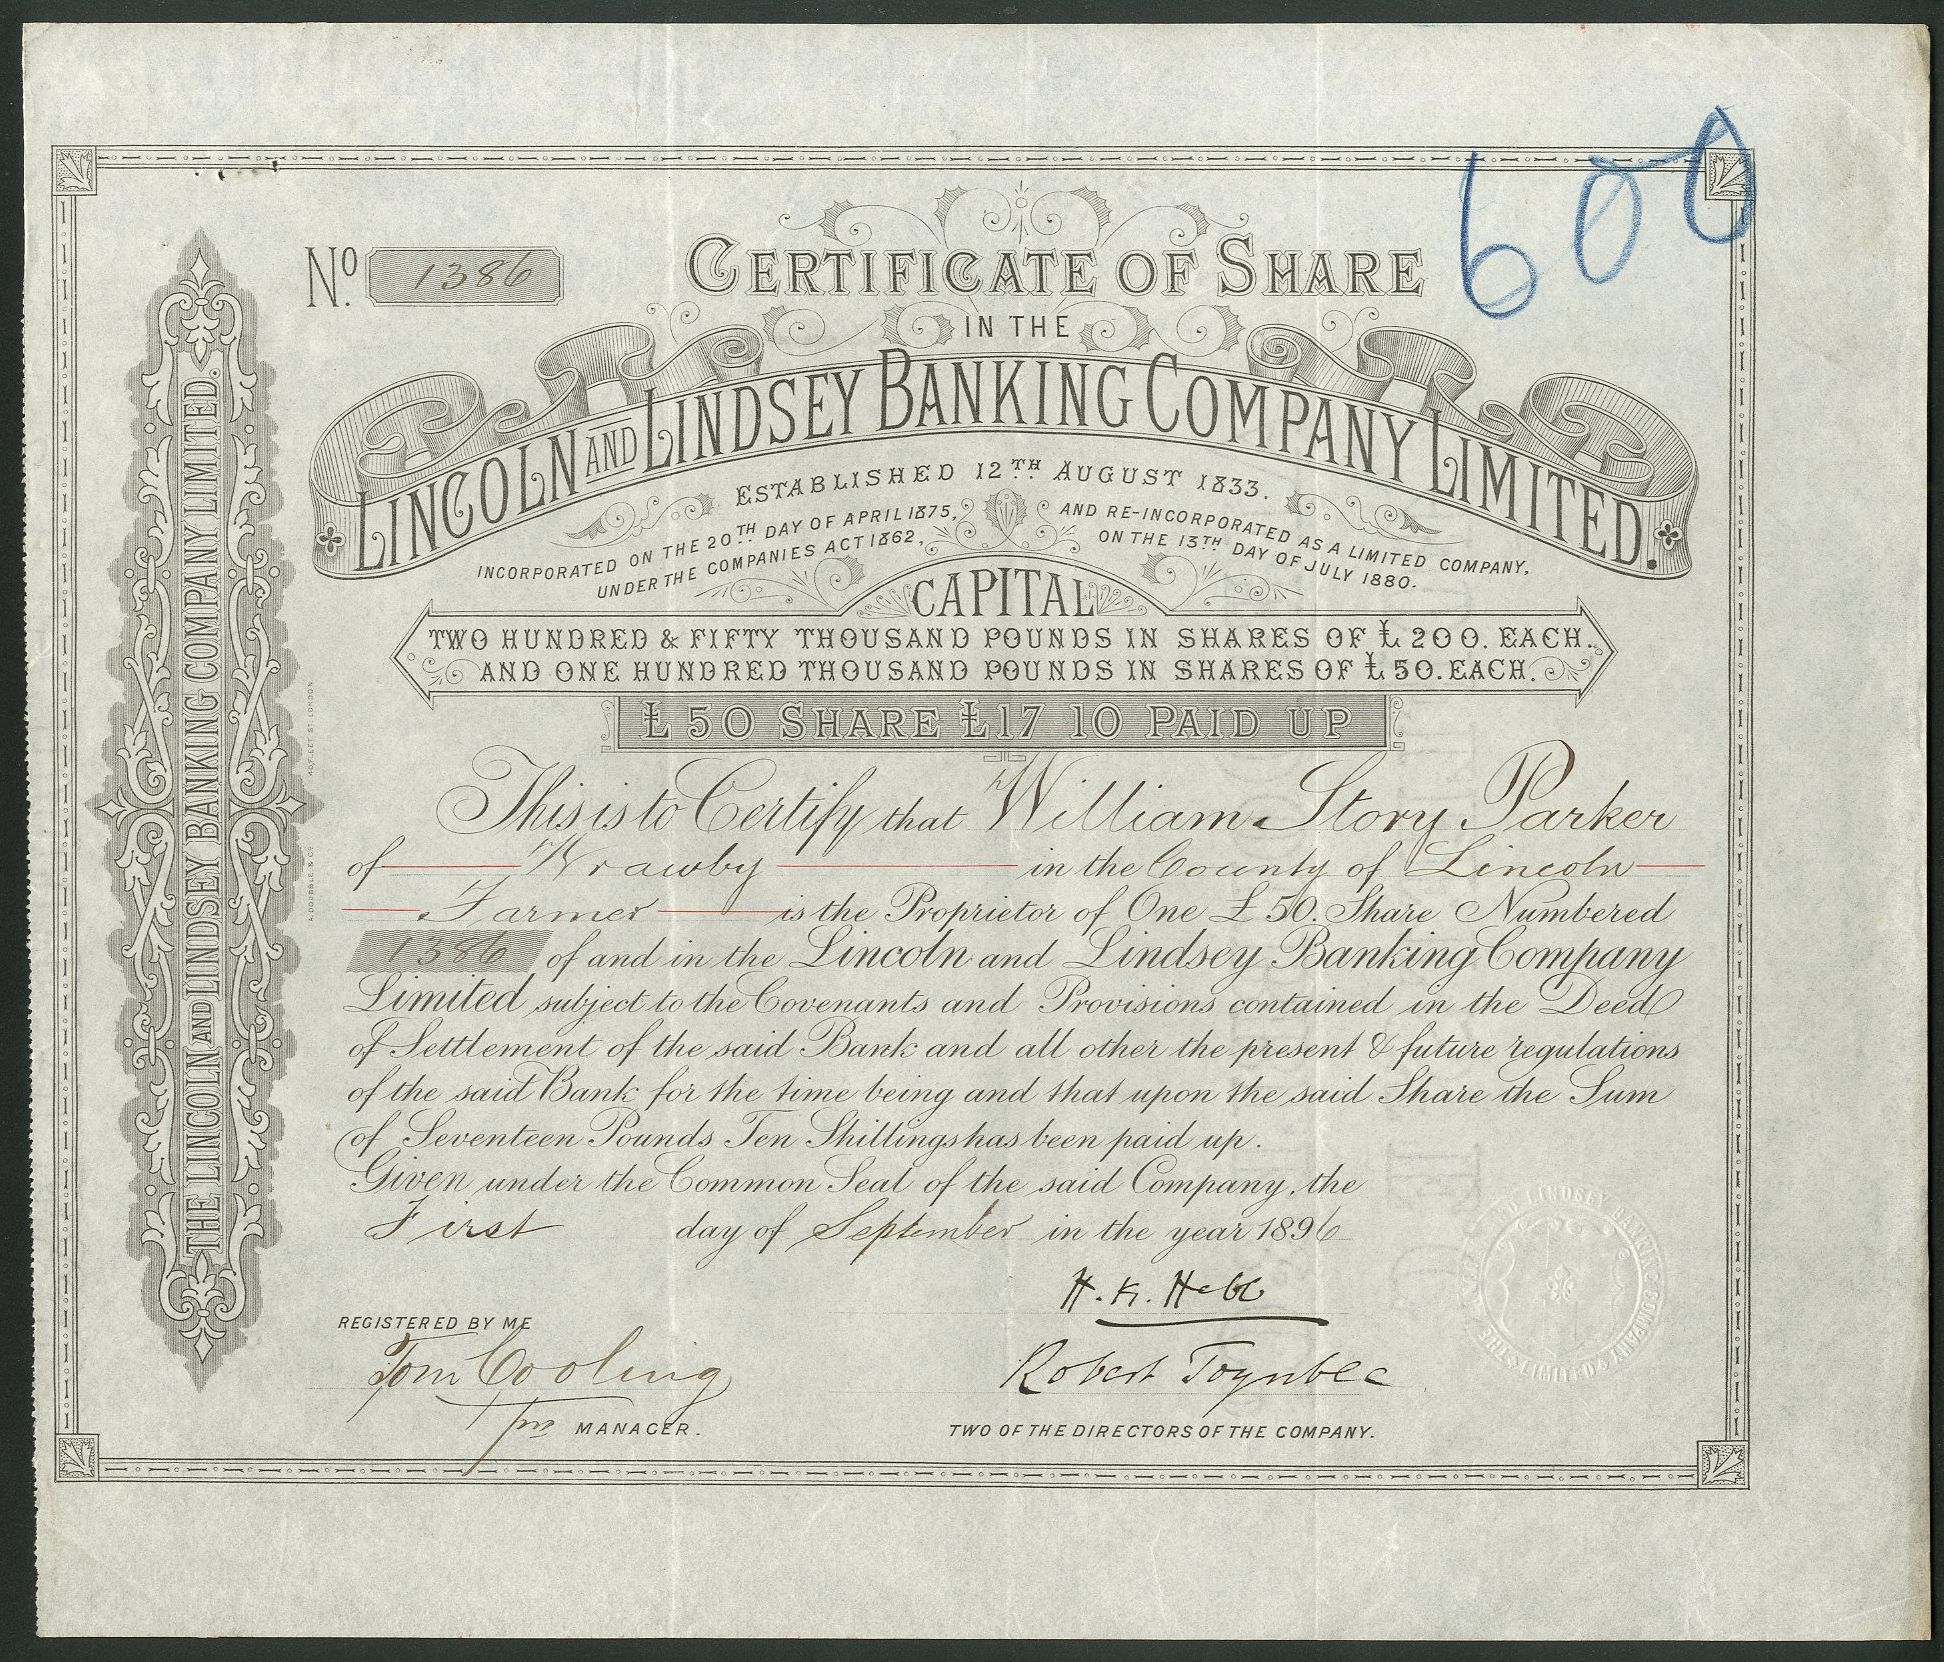 600
Nº. 1386
CERTIFICATE OF SHARE
IN THE
LINCOLN AND LINDSEY BANKING COMPANY LIMITED.
ESTABLISHED 12TH AUGUST 1833.
INCORPORATED ON THE 20TH DAY OF APRIL 1875,
UNDER THE COMPANIES ACT 1862,
AND RE-INCORPORATED AS A LIMITED COMPANY,
ON THE 13TH DAY OF JULY 1880.
CAPITAL
TWO HUNDRED & FIFTY THOUSAND POUNDS IN SHARES OF £200. EACH.
AND ONE HUNDRED THOUSAND POUNDS IN SHARES OF £50. EACH.
£50 SHARE £17 10 PAID UP
This is to Certify that William Story Parker
of Wrawby in the County of Lincoln
Farmer is the Proprietor of One £50. Share Numbered
1386 of and in the Lincoln and Lindsey Banking Company
Limited subject to the Covenants and Provisions contained in the Deed
of Settlement of the said Bank and all other the present & future regulations
of the said Bank for the time being and that upon the said Share the Sum
of Seventeen Pounds Ten Shillings has been paid up.
Given under the Common Seal of the said Company, the
First day of September in the year 1896
H. K. Hebb
REGISTERED BY ME
Tom Cooling
Robert Toynbee
MANAGER.
TWO OF THE DIRECTORS OF THE COMPANY.
THE LINCOLN AND LINDSEY BANKING COMPANY LIMITED.
LINDSEY BANKING COMPANY LIMITED THE